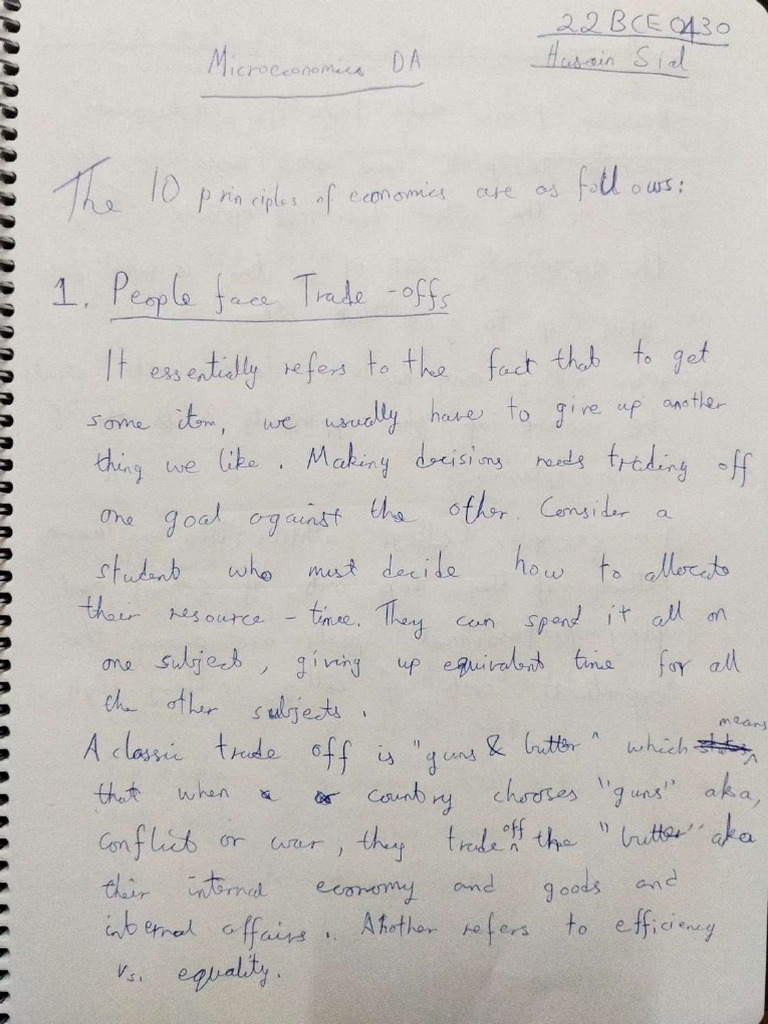 22BCE0430
Husain Sid
Microeconomics DA
The 10 principles of economics are as follows:
1. People face Trade-offs
It essentially refers to the fact that to get
some item, we usually have to give up another
thing we like. Making decisions needs trading off
one goal against the other. Consider a
student who must decide how to allocate
their resource - time. They can spend it all on
one subject, giving up equivalent time for all
the other subjects.
A classic trade off is "guns & butter" which means
that when a country chooses "guns" aka,
conflict or war, they trade off the "butter" aka
their internal economy and goods and
internal affairs. Another refers to efficiency
vs. equality.